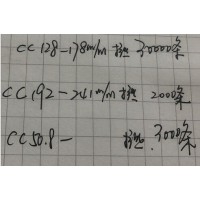 CC128-178m/m 拉 30000条
CC192-241m/m 拉 2000条
CC50.8- 拉.3000条